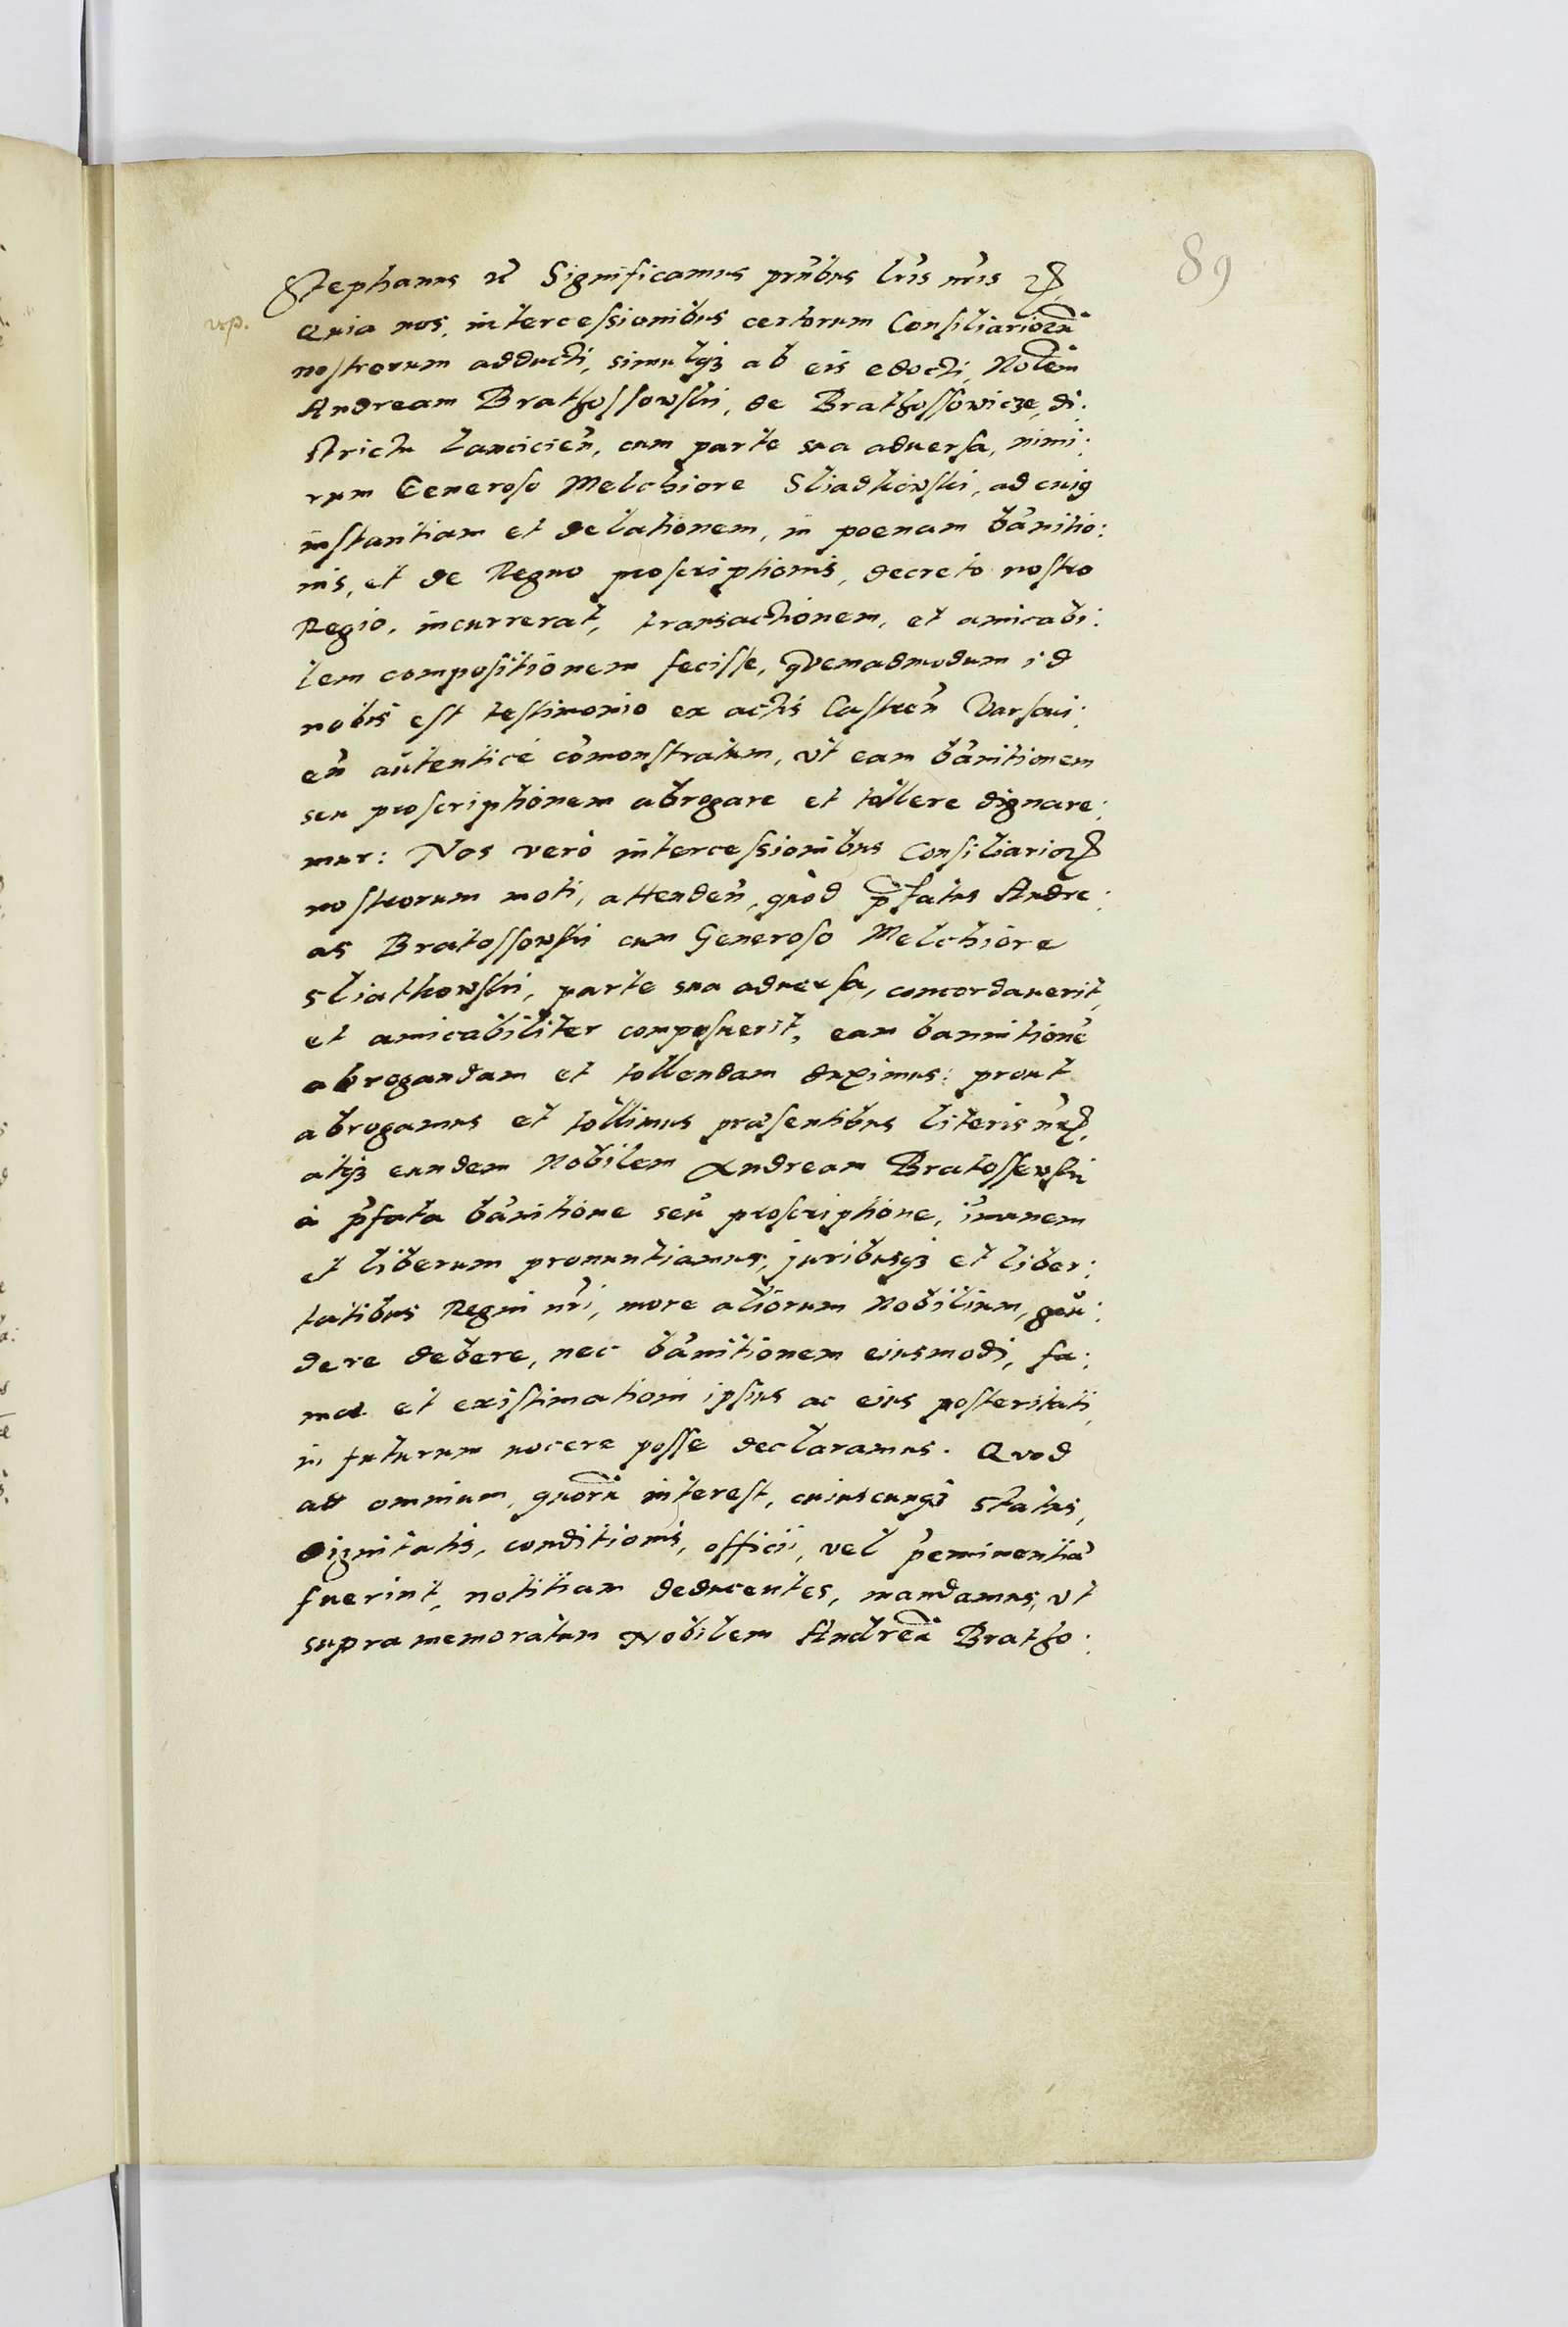 89
Stephanus etc Significamus pn̄tibus lrīs nrīs etc
up.
Quia nos, intercessionibus certorum Consiliariorū
nostrorum adducti, simulqꝫ ab eis edocti, Nōlem
Andream Brathossowski, de Brathossowicze, di:
strictu Lancicieñ, cum parte sua aduersa, nimi:
rum Generoso Melchiore Sliadkowski, ad cuiꝰ
instantiam et delationem, in poenam bānitio:
nis, et de Regno proscriptionis, decreto nostro
Regio, incurrerat, transactionem, et amicabi:
lem compositionem fecisse, quemadmodum id
nobis est testimonio ex actis Castreñ Varsoui:
eñ autenticè cōmonstratum, vt eam bānitionem
seu proscriptionem abrogare et tollere dignare:
mur: Nos verò intercessionibus Consiliarioꝝ
nostrorum moti, attendeñ, quòd p̄fatus Andre:
as Bratossowski cum Generoso Melchiore
Sliatkowski, parte sua aduersa, concordauerit,
et amicabiliter composuerit, eam bannitionē
abrogandam et tollendam duximus: prout
abrogamus et tollimus præsentibus literis nr̄is,
atqꝫ eundem Nobilem Andream Bratossewski
à p̄fata bānitione seu proscriptione, im̄unem
et liberum pronuntiamus, juribusqꝫ et liber:
tatibus Regni nrī, more aliorum Nobilium, gau:
dere debere, nec bānitionem eiusmodi, fa:
mæ et existimationi ipsius ac eius posteritati,
in futurum nocere posse declaramus. Quod
ad omnium, quorū interest, cuiuscunqꝫ status,
dignitatis, conditionis, officii, vel p̄eminentiæ
fuerint, notitiam deducentes, mandamus, vt
supra memoratum Nobilem Andreā Bratho: